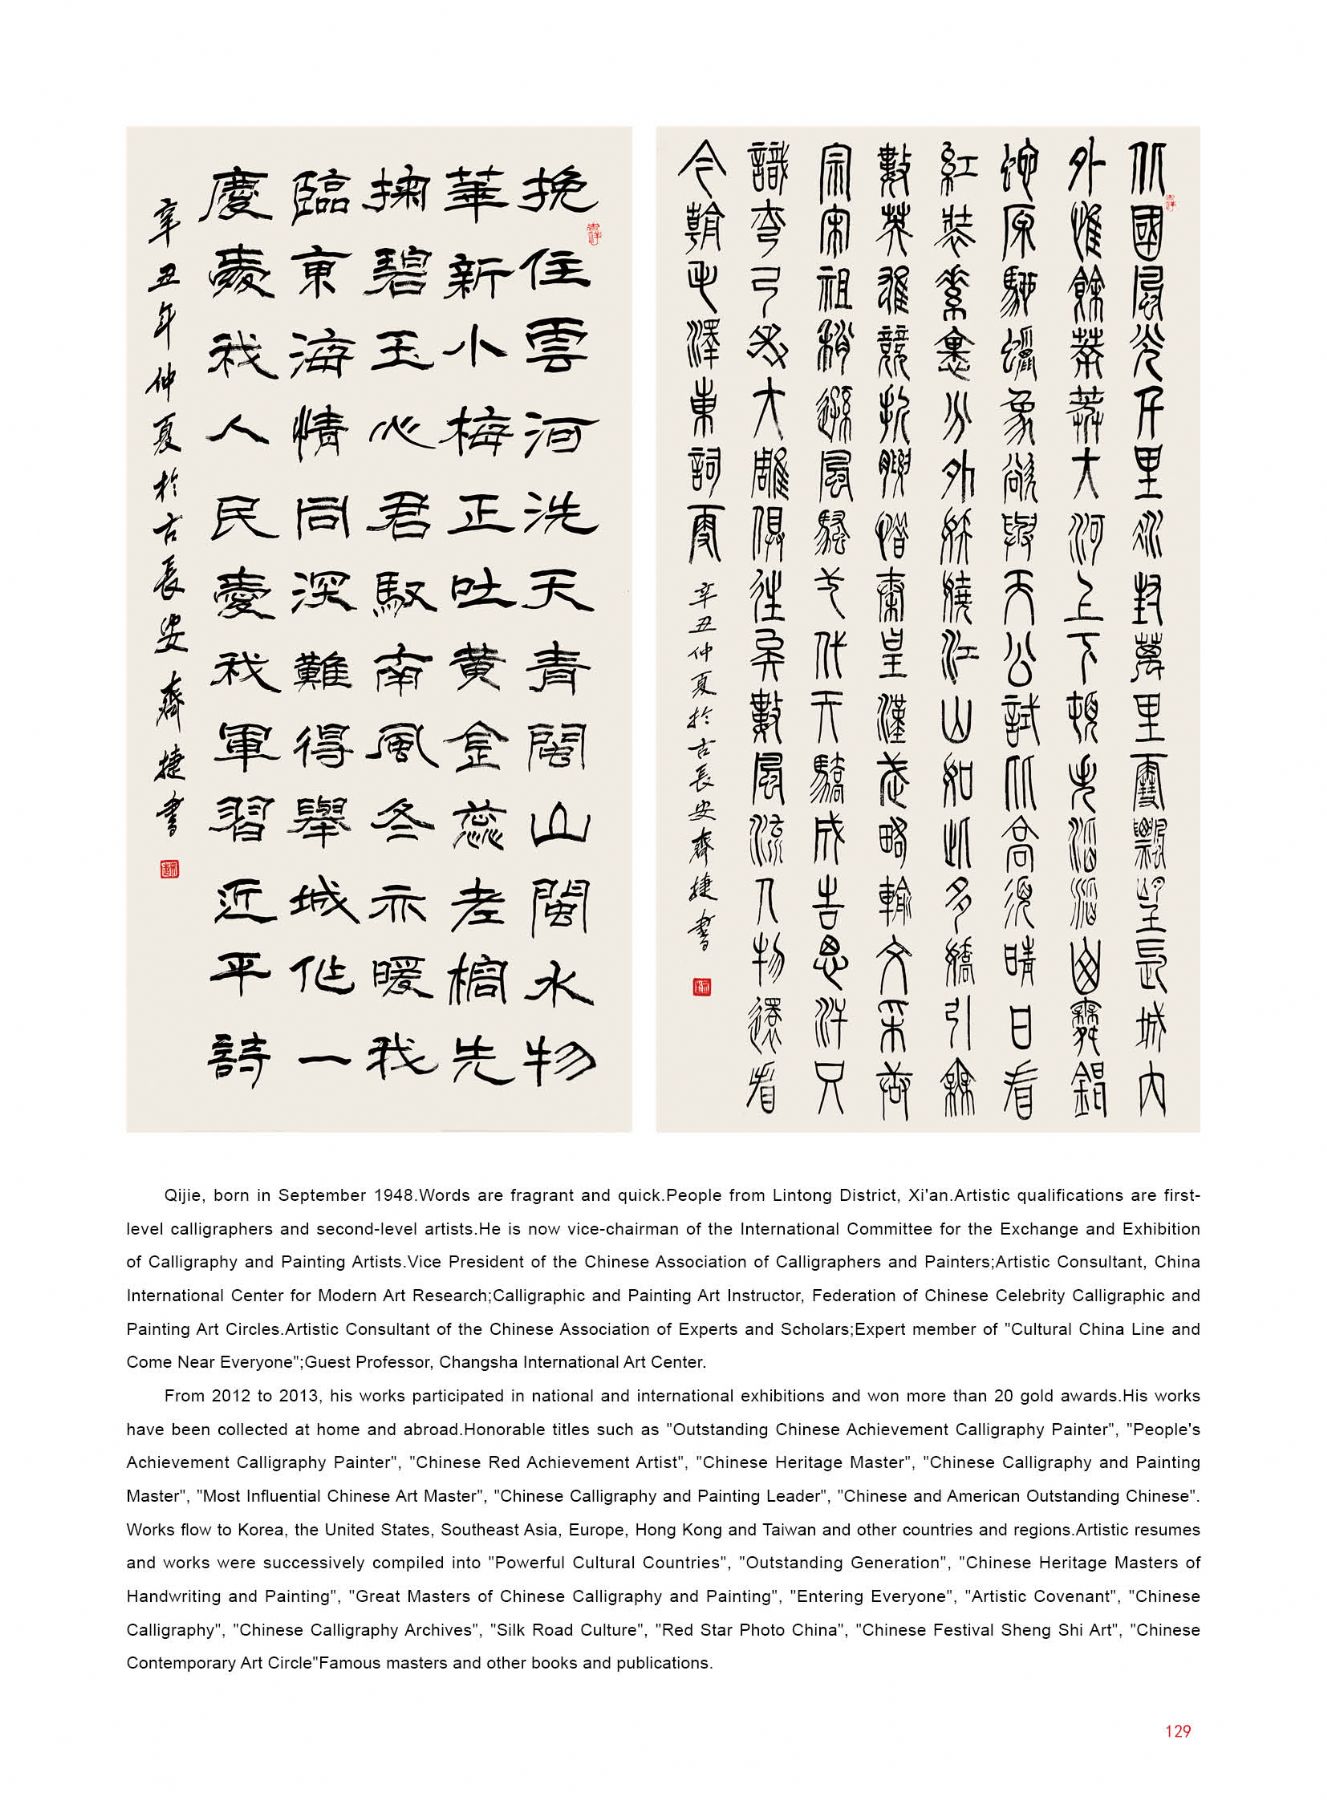 挽住雲河洗天青閩山閩水物
華新小梅正吐黃金蕊老榕先
掬碧玉心君馭南風冬亦暖我
臨東海情同深難得舉城作一
慶愛我人民愛我軍習近平詩
辛丑年仲夏於古長安齊捷書
北國風光千里冰封萬里雪飄望長城內
外惟餘莽莽大河上下頓失滔滔山舞銀
蛇原馳蠟象欲與天公試比高須晴日看
紅裝素裹分外妖嬈江山如此多嬌引無
數英雄競折腰惜秦皇漢武略輸文采唐
宗宋祖稍遜風騷弌代天驕成吉思汗只
識彎弓射大雕俱往矣數風流人物還看
今朝毛澤東詞雪 辛丑仲夏於古長安齊捷書
Qijie, born in September 1948.Words are fragrant and quick.People from Lintong District, Xi'an.Artistic qualifications are first-
level calligraphers and second-level artists.He is now vice-chairman of the International Committee for the Exchange and Exhibition
of Calligraphy and Painting Artists.Vice President of the Chinese Association of Calligraphers and Painters;Artistic Consultant, China
International Center for Modern Art Research;Calligraphic and Painting Art Instructor, Federation of Chinese Celebrity Calligraphic and
Painting Art Circles.Artistic Consultant of the Chinese Association of Experts and Scholars;Expert member of "Cultural China Line and
Come Near Everyone";Guest Professor, Changsha International Art Center.
From 2012 to 2013, his works participated in national and international exhibitions and won more than 20 gold awards.His works
have been collected at home and abroad.Honorable titles such as "Outstanding Chinese Achievement Calligraphy Painter", "People's
Achievement Calligraphy Painter", "Chinese Red Achievement Artist", "Chinese Heritage Master", "Chinese Calligraphy and Painting
Master", "Most Influential Chinese Art Master", "Chinese Calligraphy and Painting Leader", "Chinese and American Outstanding Chinese".
Works flow to Korea, the United States, Southeast Asia, Europe, Hong Kong and Taiwan and other countries and regions.Artistic resumes
and works were successively compiled into "Powerful Cultural Countries", "Outstanding Generation", "Chinese Heritage Masters of
Handwriting and Painting", "Great Masters of Chinese Calligraphy and Painting", "Entering Everyone", "Artistic Covenant", "Chinese
Calligraphy", "Chinese Calligraphy Archives", "Silk Road Culture", "Red Star Photo China", "Chinese Festival Sheng Shi Art", "Chinese
Contemporary Art Circle"Famous masters and other books and publications.
129